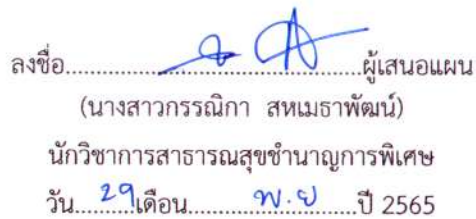 ลงชื่อ..............................ผู้เสนอแผน
(นางสาวกรรณิกา สหเมธาพัฒน์)
นักวิชาการสาธารณสุขชำนาญการพิเศษ
วัน....29เดือน..........พ.ย.........ปี 2565